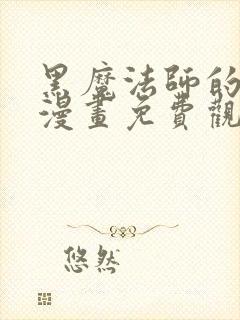 黑魔法師的
漫畫免費觀
悠然